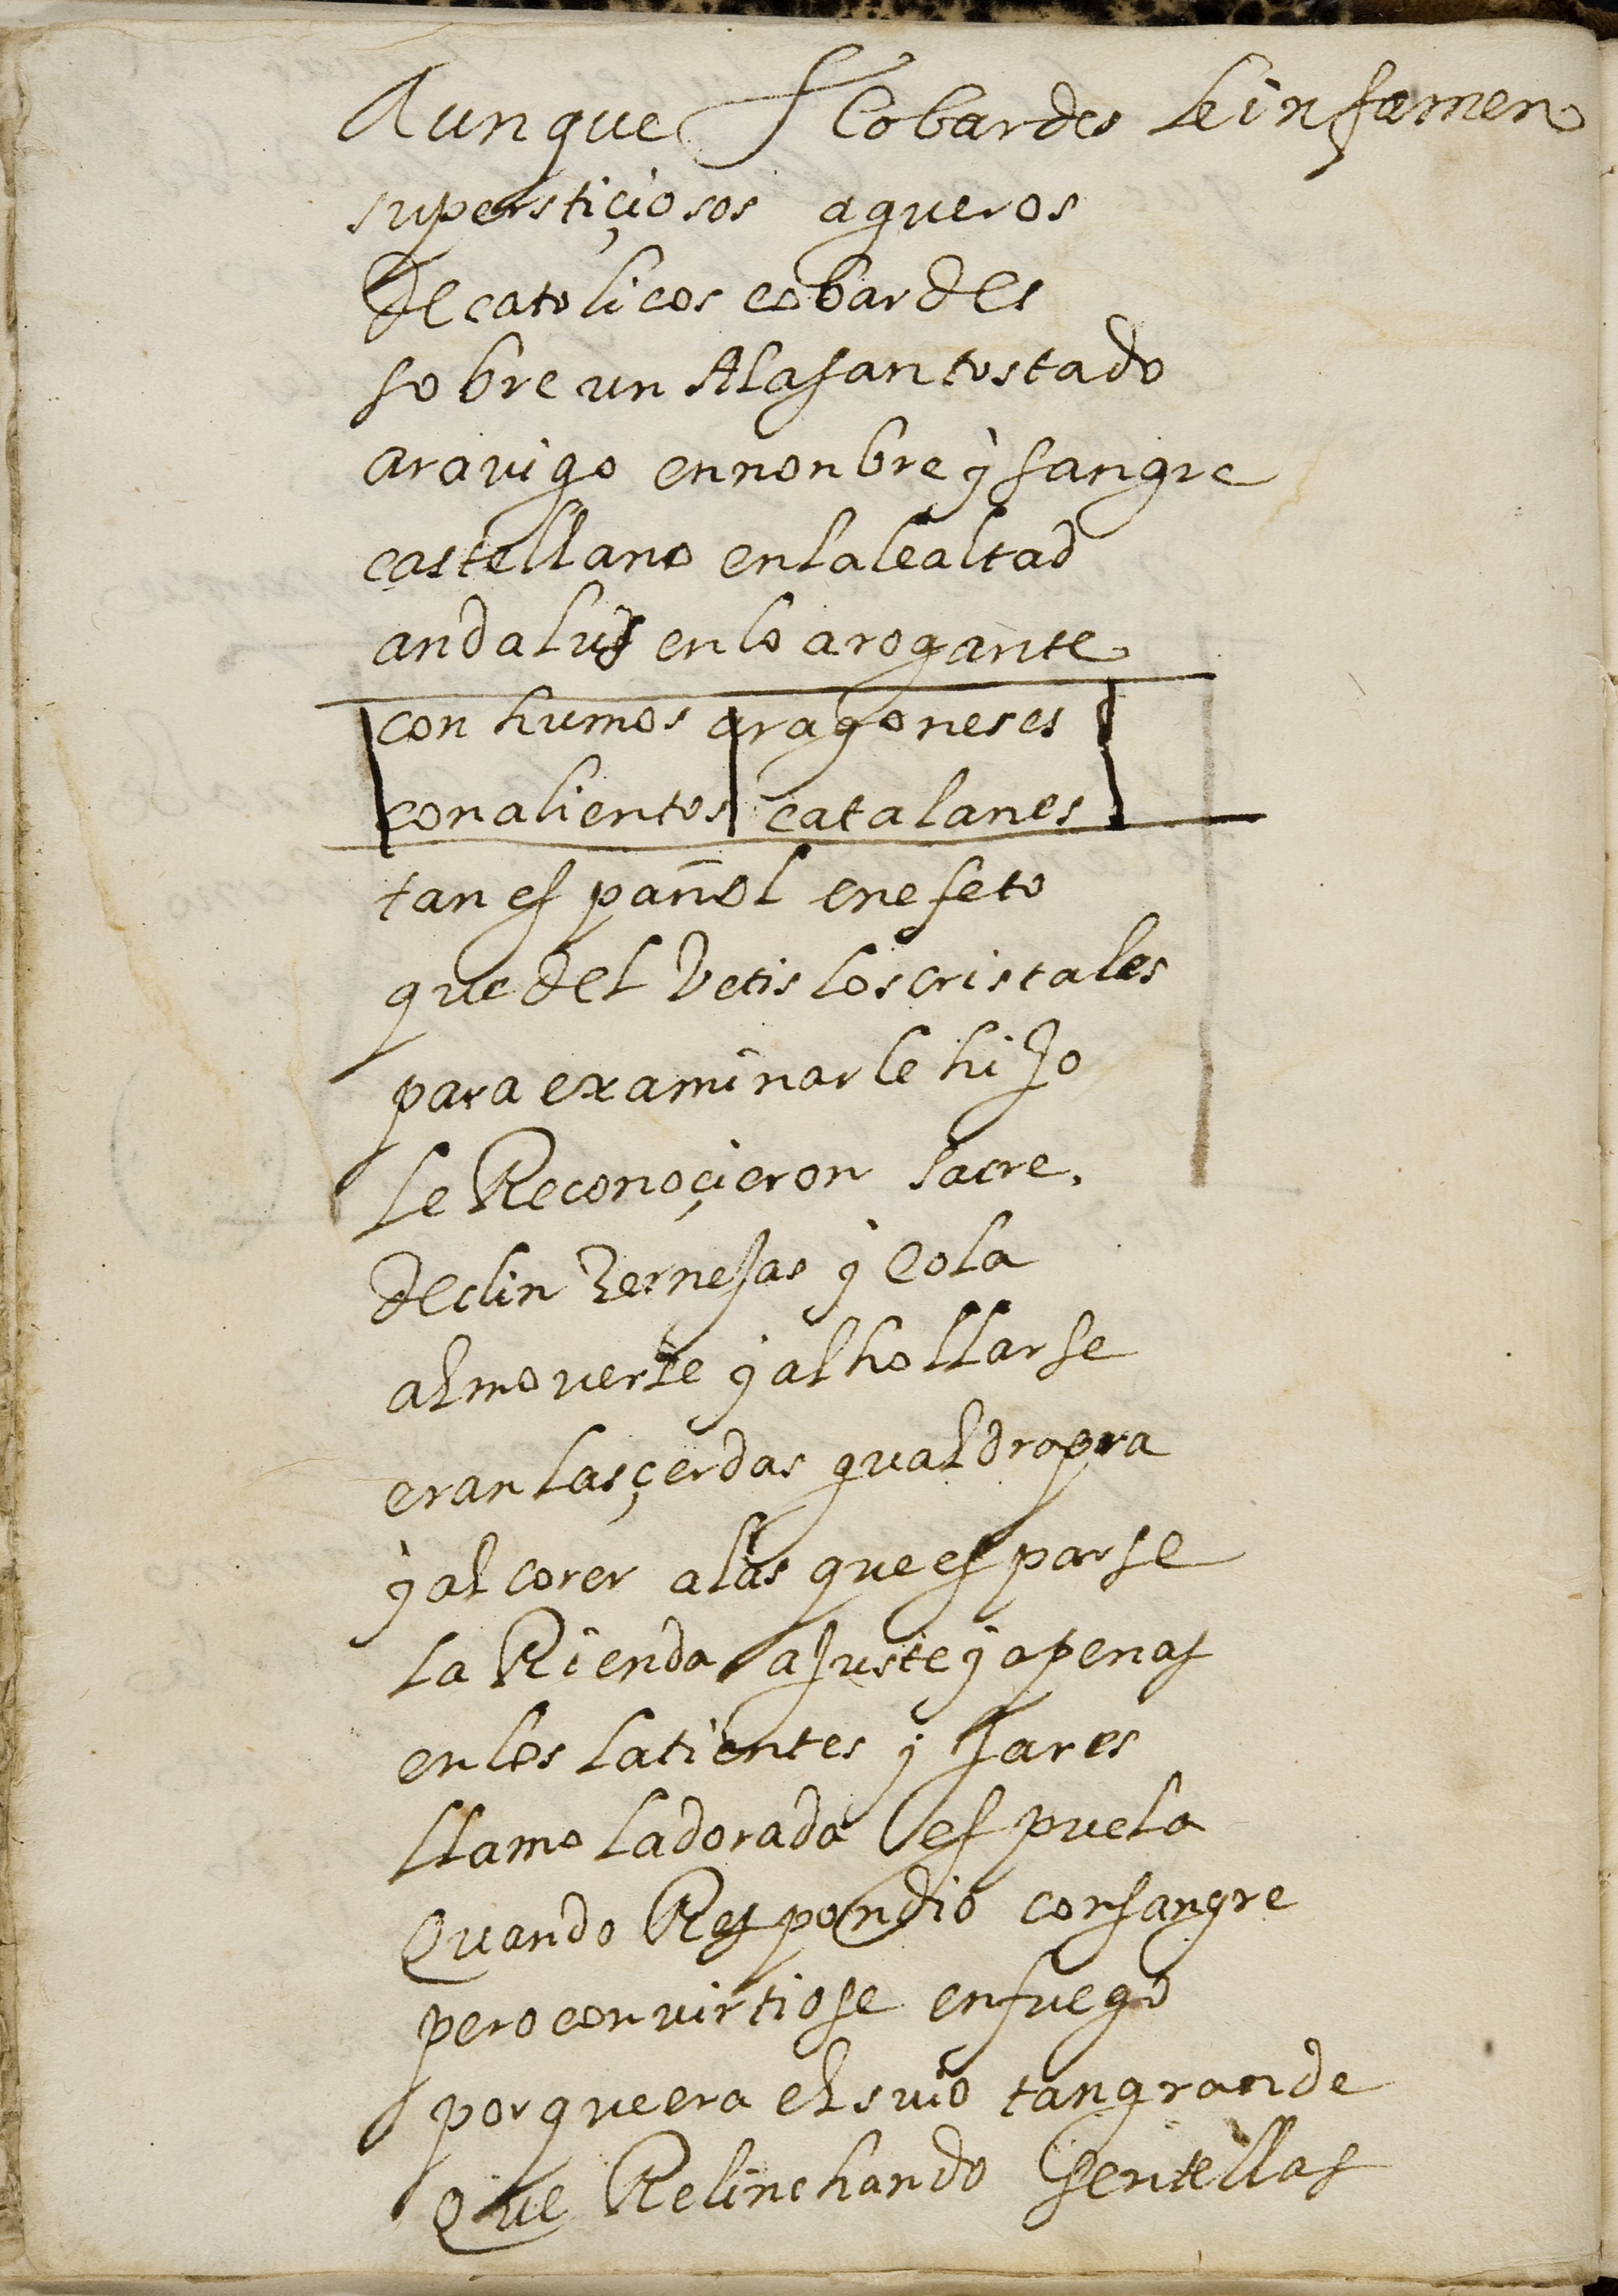 Aunque Cobardes le infamen
superstiçiosos agueros
de catolicos cobardes
sobre un Alasan tostado
aravigo en nonbre y sangre
castellano en la lealtad
andalus en lo arogante
con humos aragoneses
con alientos catalanes
tan español en efeto
que del Vetis los cristales
para examinarle hijo
le Reconoçieron sacre.
de clin zernejas y Cola
al moverse y al hollarse
eran las çerdas gualdrapra
y al corer alas que esparse
la Rienda ajuste y apenas
en los latientes yjares
llamo la dorada espuela
Quando Respondio con sangre
pero convirtiose en fuego
porque era el suio tan grande
Que Relinchando sentellas